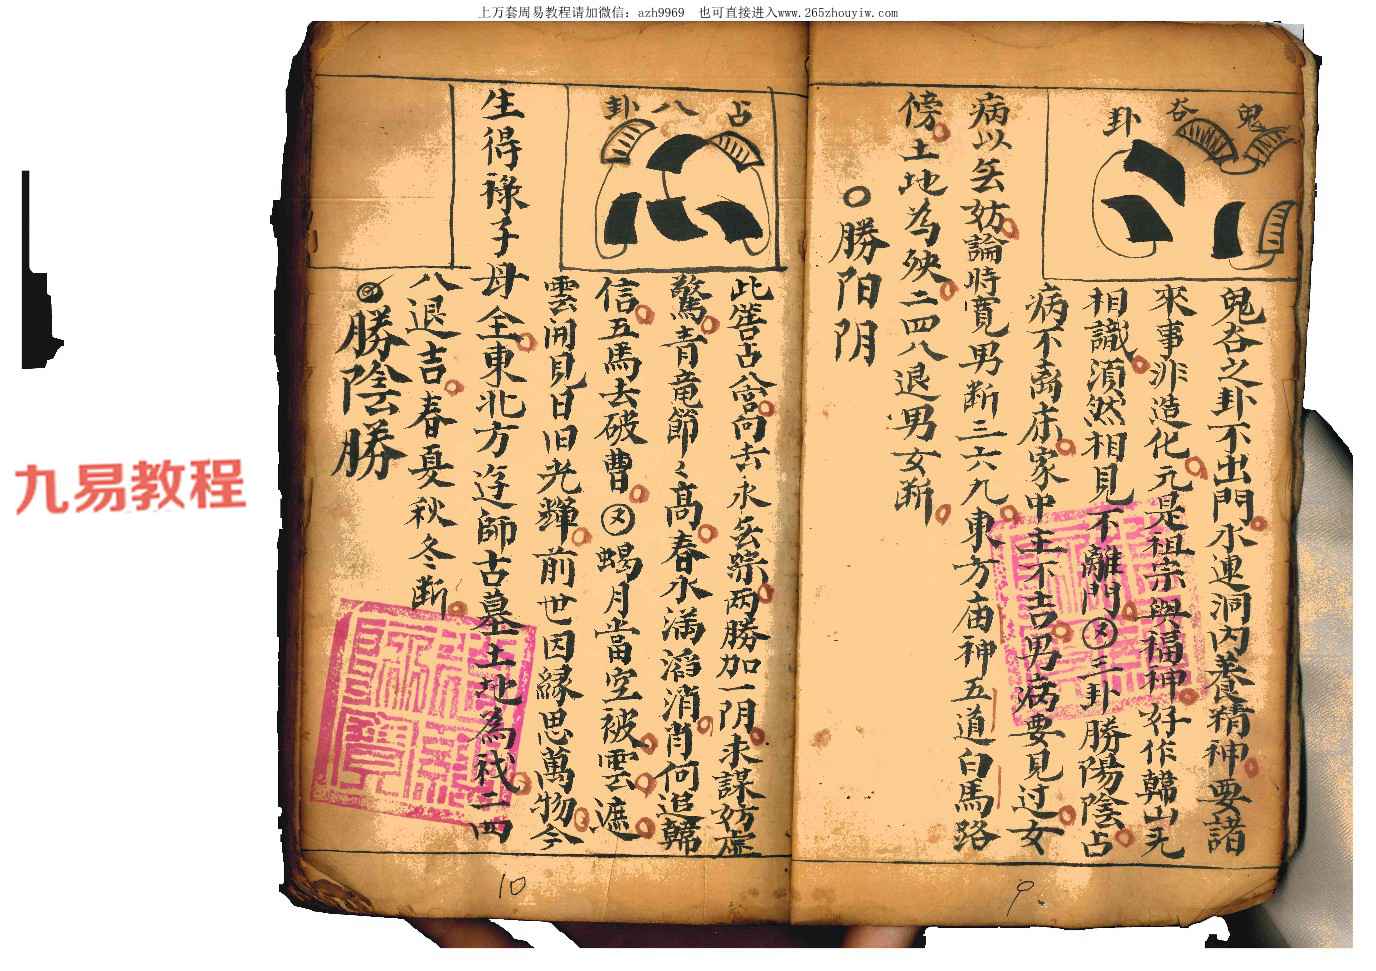 上万套周易教程请加微信：azh9969　也可直接进入www.265zhouyiw.com
鬼谷卦
鬼谷之卦不出門水連洞内養精神要諸
來事非造化元是祖宗與福神好作歸山无
相識須然相見不離門又三卦勝陽陰占
病不离床家中主不吉男病要見过女
病以妨論時寛男断三六九東方庙神五道白馬路
傍土地為殃二四八退男女断
勝阳阴
9
占八卦
此占向去永踪两勝加一阴求謀妨虚
驚青竜節々高春水満滔消肖何追歸
信五馬去破曹又蝎月當空被雲遮
雲開見日旧光輝前世因縁思萬物今
生得祿子母全東北方師古墓土地為二四
八退吉春夏秋冬断
勝陰勝
10
九易教程